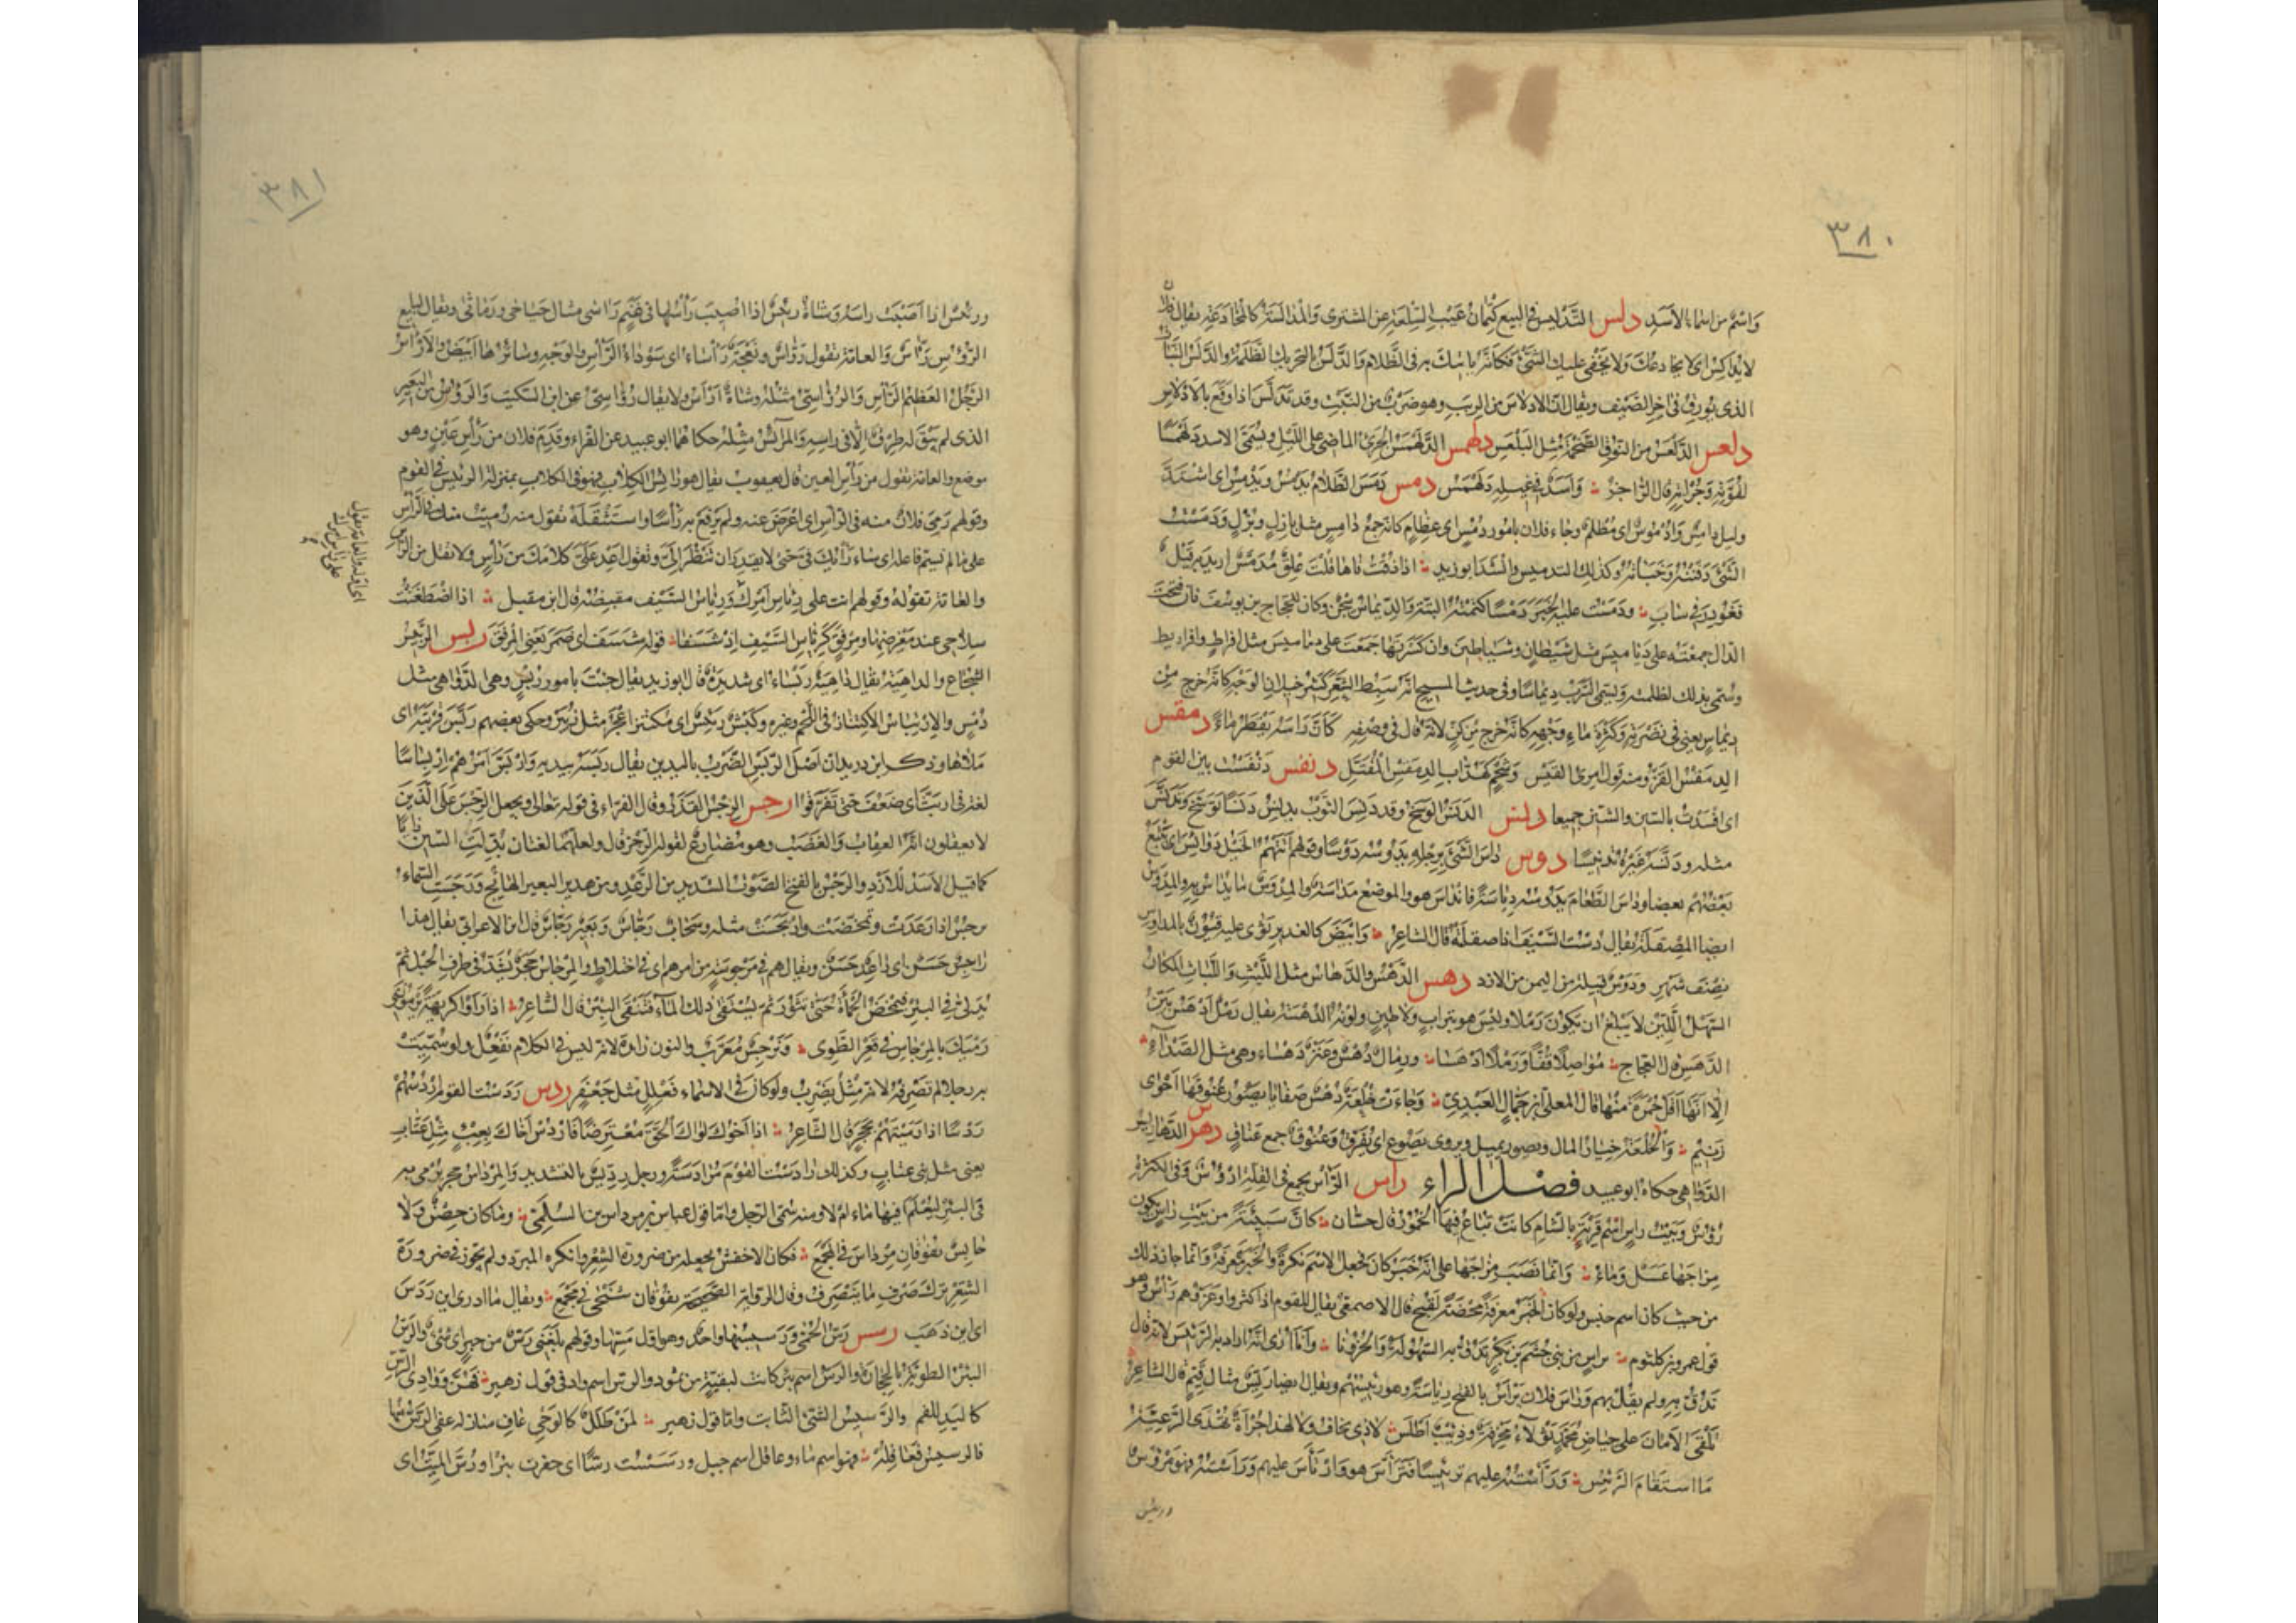 ٣٨٠
واسم من اسماء الاسد دلس التدليس فى البيع كتمان عيب السلعة عن المشترى والمدالسة كالمخادعة يقال فلان
لا يدالس اى لا يخادعك ولا يخفى عليك الشئ فكأنه ياتيك به فى الظلام والدلس بالتحريك الظلمة والدلس النبات
الذى يورق فى اخر الصيف ويقال ان الادلاس من الربب وهو ضرب من النبت وقد تدلس اذا وقع بالادلاس
دلعس الدلعس من النوق الضخمة مثل البلعس دلهمس الدلهمس الجرئ الماضى على الليل ويسمى الاسد دلهمسا
لقوته وجرأته قال الراجز واسد فى غيله دلهمس دمس دمس الظلام يدمس ويدمس اى اشتد
وليل دامس وادموس اى مظلم وجاء فلان بامور دمس اى عظام كانه جمع دامس مثل بازل وبزل ودمست
الشئ دفنته وخبأته وكذلك التدميس وانشد ابو زيد اذا ذقت فاها قلت علق مدمس اريد به قيل
فغودر فى ساب ودمست عليه الخبر دمسا كتمته البتة والديماس سجن كان للحجاج بن يوسف فان فتحت
الدال جمعته على دياميس مثل شيطان وشياطين وان كسرتها جمعت على دماميس مثل قراط وقراريط
وسمى بذلك لظلمته ويسمى السرب ديماسا وفى حديث المسيح انه سبط الشعر كثير خيلان الوجه كانه خرج من
ديماس يعنى فى نضرته وكثرة ماء وجهه كانه خرج من كن لانه قال فى وصفه كأن راسه يقطر ماء دمقس
الدمقس القز ومنه قول امرئ القيس وشحم كهداب الدمقس المفتل دنفس دنفست بين القوم
اى افسدت بالسين والشين جميعا دنس الدنس الوسخ وقد دنس الثوب يدنس دنسا توسخ وتدنس
مثله ودنسه غيره تدنيسا دوس داس الشئ برجله يدوسه دوسا وقولهم اتتهم الخيل دوائس اى يتبع
بعضهم بعضا وداس الطعام يدوسه دياسة فانداس هو والموضع مداسة والمدوس ما يداس به والمدوس
ايضا المصقلة يقال دست السيف اذا صقلته قال الشاعر وابيض كالغدير ثوى عليه قيون بالمداوس
نصف شهر ودوس قبيلة من اليمن من الازد دهس الدهس والدهاس مثل اللبث واللباث المكان
السهل اللين لا يبلغ ان يكون رملا وليس هو بتراب ولا طين ولونه الدهسة يقال رمل ادهس بين
الدهس قال العجاج مواصلا قفا ورملا ادهسا ورمال دهس وعنز دهساء وهى مثل الصدآء
الا انها اقل حمرة منها قال المعلى بن جمال العبدى وجاءت خلعة دهس صفايا يصور عنوقها احوى
زنيم والخلعة خيار المال ويصور يميل ويروى يصوع اى يفرق وعنوق جمع عناق دهرس الدهاريس
الدواهى حكاه ابو عبيد فصل الراء راس الرأس يجمع فى القلة ارؤس وفى الكثرة
رؤس وبيت راس اسم قرية بالشام كانت تباع فيها الخمور قال حسان كأن سبيئة من بيت راس يكون
مزاجها عسل وماء وانما نصب مزاجها على انه خبر كان فجعل الاسم نكرة والخبر معرفة وانما جاز ذلك
من حيث كان اسم جنس ولو كان الخبر معرفة محضة لقبح قال الاصمعى يقال للقوم اذا كثروا وعزوا هم رأس وهو
قول عمرو بن كلثوم براس من بنى جشم بن بكر ندق به السهولة والحزونا وانا ارى انه اراد به الرئيس لانه قال
ندق به ولم يقل بهم وراس فلان يرأس بالفتح رياسة وهو رئيسهم ويقال ايضا ريس مثال قيم قال الشاعر
تلقى الامان على حياض محمد ثولاء مخرفة وذئب اطلس لا ذى تخاف ولا لهذا جرأة تهدى الرعية
ما استقام الريس ورأسته عليهم ترئيسا فترأس هو وارتأس عليهم ورأسته فهو مرؤس
ورئيس
٣٨١
ورئيس اذا اصبت راسه وشاة رئيس اذا اصيب رأسها فى غنم رأسى مثال حباجى ورماثى ويقال لبائع
الرؤس رأس والعامة تقول رواس ونعجة رأساء اى سوداء الرأس والوجه وسائرها ابيض والارأس
الرجل العظيم الرأس والرؤاسى مثله وشاة ارأس ولا يقال رؤاسى عن ابن السكيت والرؤوس من البعير
الذى لم يبق له طرق الا فى راسه والمرائس مثله حكاهما ابو عبيد عن الفراء وقدم فلان من رأس عين وهو
موضع والعامة تقول من رأس العين قال يعقوب يقال هو رائس الكلاب فهو فى الكلاب بمنزلة الرئيس فى القوم
وقولهم رمى فلان منه فى الراس اى اعرض عنه ولم يرفع به رأسا واستثقله تقول منه رميت منك فى الرأس
على ما لم يسم فاعله اى ساء رأيك فى حتى لا يقدر ان تنظر الى وتقول اعد على كلامك من رأس ولا تقل من الراس
والعامة تقوله وقولهم انت على رئاس امرك ورئاس السيف مقبضه قال ابن مقبل اذا اضطغنت
سلاحى عند مغرضها ومرفق كرئاس السيف اذ شسفا قوله شسف اى ضمر يعنى المرفق ربس الربيس
الشجاع والداهية يقال داهية ربساء اى شديدة قال ابو زيد يقال جئت بامور ربس وهى الدواهى مثل
دمس والارتباس الاكتناز فى اللحم وغيره وكبش ربيس اى مكتنز اعجر مثل ربيز وحكى بعضهم ربس قربته اى
ملأها وذكر ابن دريد ان اصل الربس الضرب باليدين يقال ربسه بيديه واربس امرهم اربساسا
لغة فى اربث اى ضعف حتى تفرقوا رجس الرجس القذر وقال الفراء فى قوله تعالى ويجعل الرجس على الذين
لا يعقلون انه العقاب والغضب وهو مضارع لقوله الرجز قال ولعلهما لغتان بدلت السين زايا
كما قيل الاسد للازد والرجس بالفتح الصوت الشديد من الرعد ومن هدير البعير الهائج ورجست السماء
ترجس اذا رعدت وتمخضت وارتجست مثله وسحاب رجاس وبعير رجاس قال ابن الاعرابى يقال هذا
راجس حسن اى راعد حسن ويقال هم فى مرجوسة من امرهم اى فى اختلاط والمرجاس حجر يشد فى طرف الحبل ثم
يدلى فى البئر فتمخض الحمأة حتى تثور ثم يستقى ذلك الماء فتنقى البئر قال الشاعر اذا رأوا كريهة يرمون بى
رميك بالمرجاس فى قعر الطوى ونرجس معرب والنون زائدة لانه ليس فى الكلام نفعل ولو سميت
به رجلا لم تصرفه لانه مثل نضرب ولو كان فى الاسماء فعلل مثل جعفر ردس ردست القوم اردسهم
ردسا اذا رميتهم بحجر قال الشاعر اذا اخوك لواك الحق معترضا فاردس اخاك بعبء مثل عتاب
يعنى مثل بنى عتاب وكذلك رادست القوم مرادسة ورجل رديس بالتشديد والمرداس حجر يرمى به
فى البئر ليعلم افيها ماء ام لا ومنه سمى الرجل واما قول عباس بن مرداس السلمى وما كان حصن ولا
حابس يفوقان مرداس فى المجمع فكان الاخفش يجعله من ضرورة الشعر وانكره المبرد ولم يجوز فى ضرورة
الشعر ترك صرف ما ينصرف وقال الرواية الصحيحة يفوقان شيخى فى مجمع ويقال ما ادرى اين ردس
اى اين ذهب رسس رس الحمى ورسيسها واحد وهو اول مسها وقولهم بلغنى رس من خبر اى شئ والرس
البئر المطوية بالحجارة والرس اسم بئر كانت لبقية من ثمود والرس اسم واد فى قول زهير فهن ووادى الرس
كاليد للفم والرسيس الشئ الثابت واما قول زهير لمن طلل كالوحى عاف منازله عفى الرس منها
فالرسيس فعاقله فهو اسم ماء وعاقل اسم جبل ورسست رسا اى حفرت بئرا ورس الميت اى